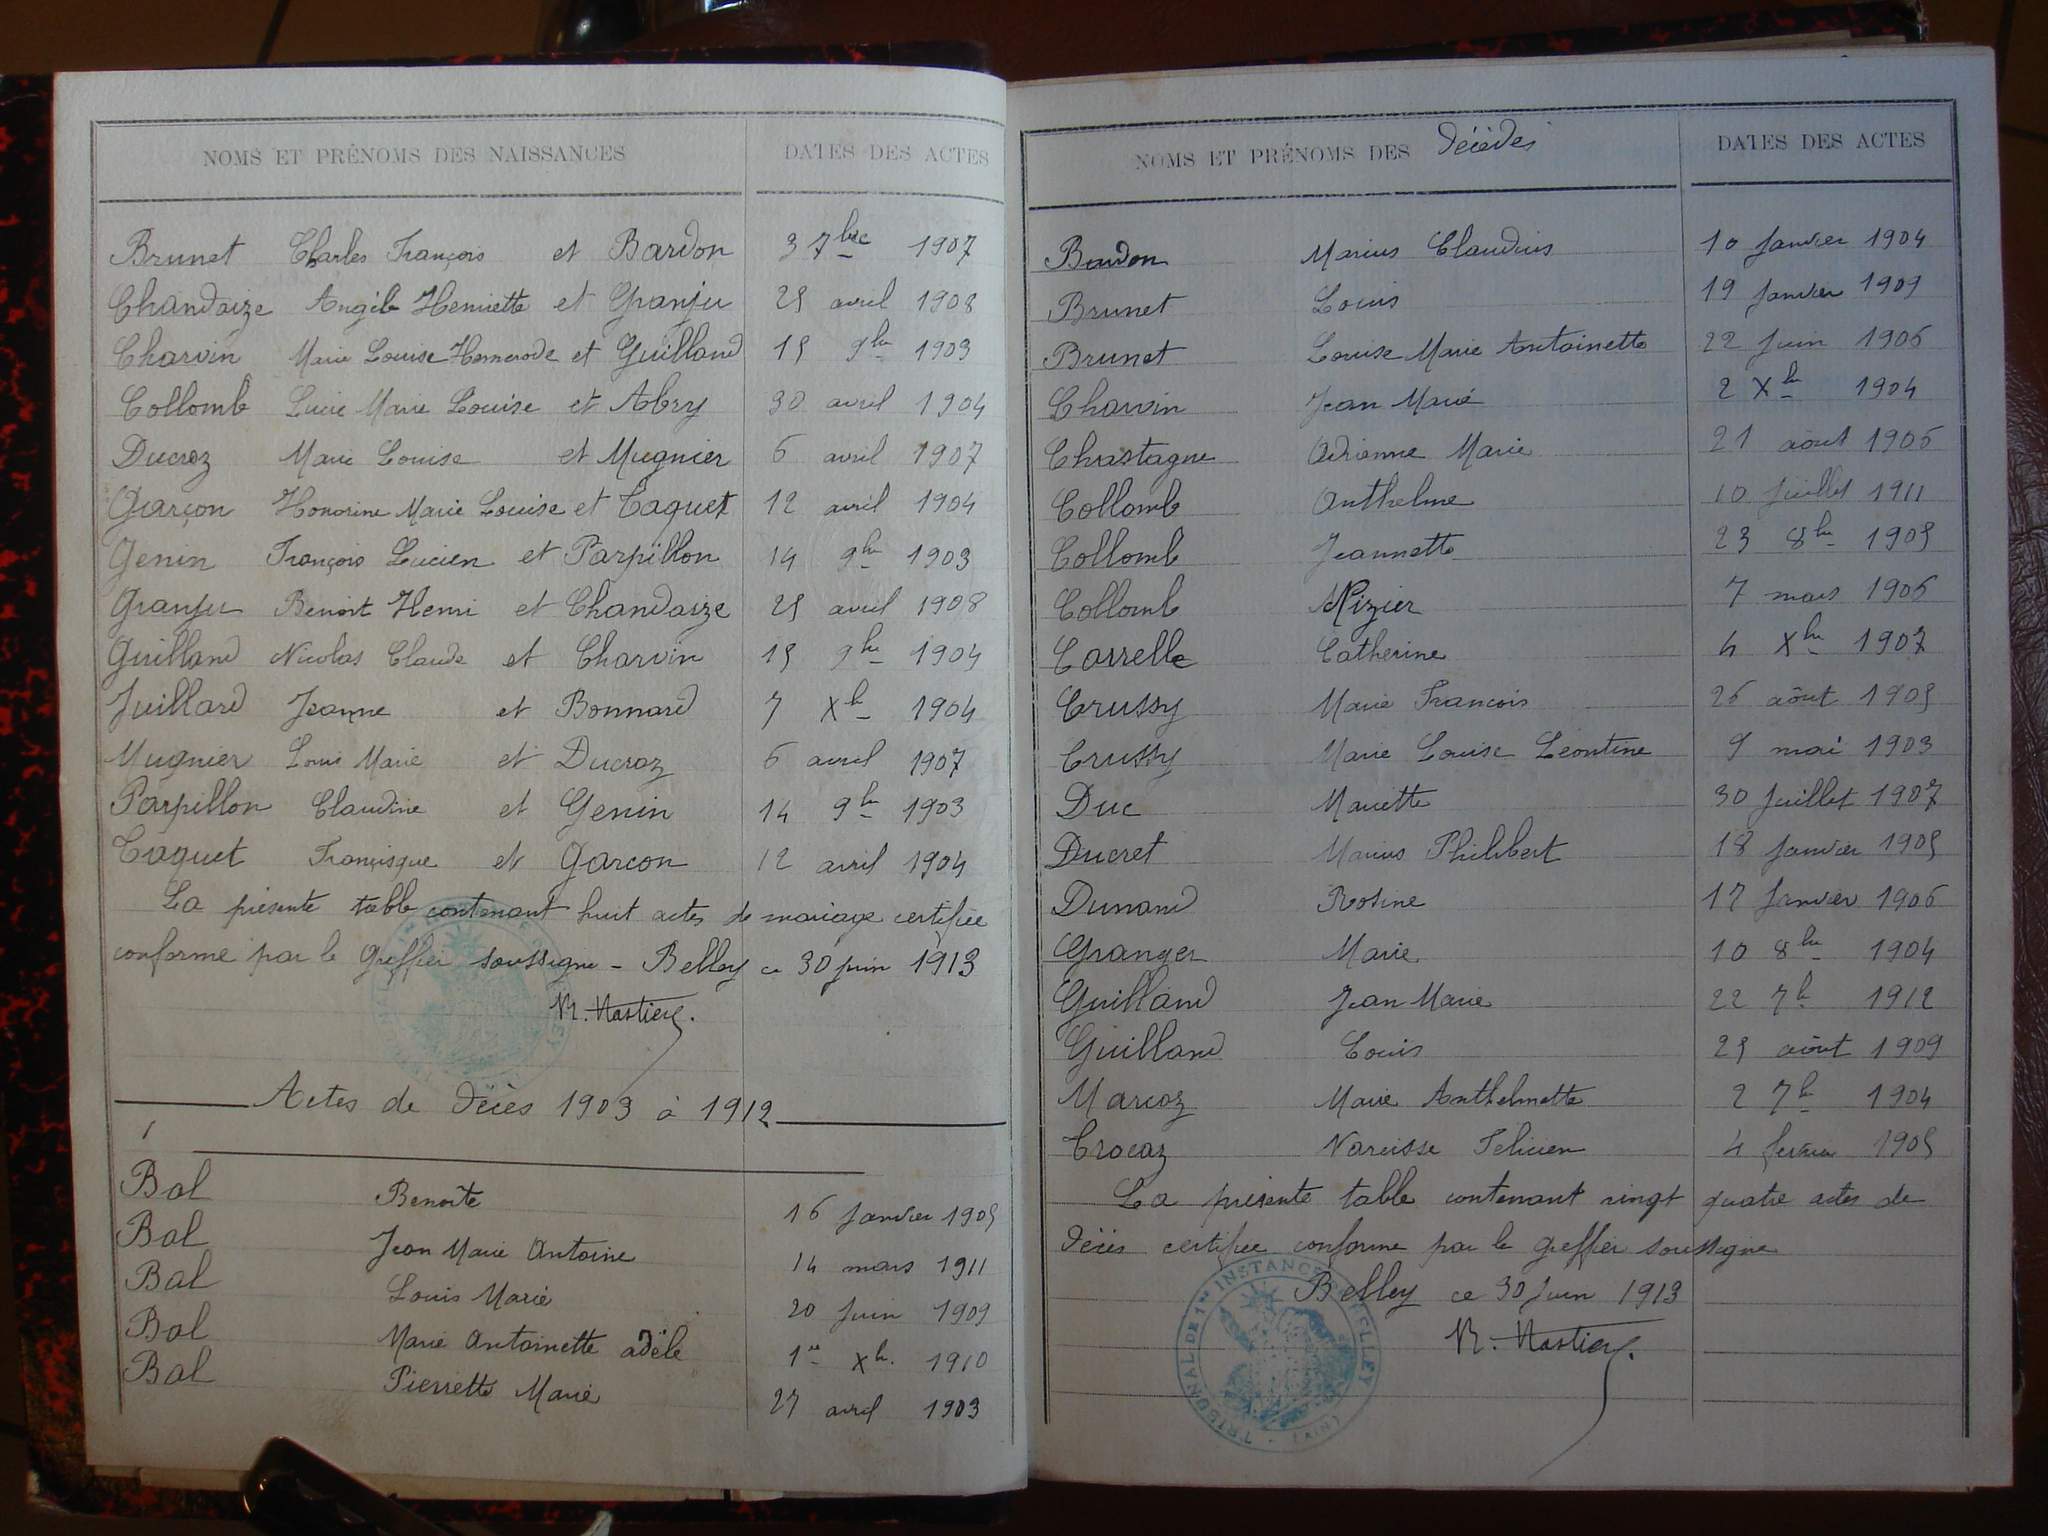 NOMS ET PRÉNOMS DES NAISSANCES DATES DES ACTES
Brunet Charles François et Bardon 3 7bre 1907
Chandaize Angèle Henriette et Granju 25 avril 1908
Charvin Marie Louise et Guilland 15 9bre 1903
Collomb Lucie Marie Louise et Abry 30 avril 1904
Ducroz Marie Louise et Mugnier 6 avril 1907
Garçon Honorine Marie Louise et Taquet 12 avril 1904
Genin François Lucien et Parpillon 14 9bre 1903
Granju Benoit Henri et Chandaize 25 avril 1908
Guilland Nicolas Claude et Charvin 15 9bre 1904
Juillard Jeanne et Bonnard 7 Xbre 1904
Mugnier Louis Marie et Ducroz 6 avril 1907
Parpillon Claudine et Genin 14 9bre 1903
Taquet Françisque et Garcon 12 avril 1904
La présente table contenant huit actes de mariage certifiée
conforme par le Greffier soussigne - Belley ce 30 juin 1913
Actes de décès 1903 à 1912
Bal Benoîte 16 Janvier 1905
Bal Jean Marie Antoine 14 mars 1911
Bal Louis Marie 20 Juin 1909
Bal Marie Antoinette adèle 1er Xbre 1910
Bal Pierrette Marie 27 avril 1903
NOMS ET PRÉNOMS DES décédés DATES DES ACTES
Bardon Marius Claudius 10 Janvier 1904
Brunet Louis 19 Janvier 1909
Brunet Louise Marie Antoinette 22 Juin 1906
Charvin Jean Marie 2 Xbre 1904
Chastagne Adrienne Marie 21 aout 1906
Collomb Anthelme 10 Juillet 1911
Collomb Jeannette 23 8bre 1905
Collomb Nizier 7 mars 1906
Catherine 4 Xbre 1907
Crussy Marie Francois 26 aôut 1905
Crussy Marie Louise Léontine 9 mai 1903
Duc Mariette 30 Juillet 1907
Ducret Marius Philibert 18 Janvier 1905
Dunand Rosine 17 Janvier 1906
Granger Marie 10 8bre 1904
Guilland Jean Marie 22 7b 1912
Guilland Louis 25 aôut 1909
Marcoz Marie Anthelmette 2 7b 1904
Trocaz Narcisse Felicien 4 fevrier 1905
La présente table contenant vingt quatre actes de
décès certifiée conforme par le greffier soussigne
Belley ce 30 Juin 1913
TRIBUNAL DE 1re INSTANCE BELLEY (AIN)